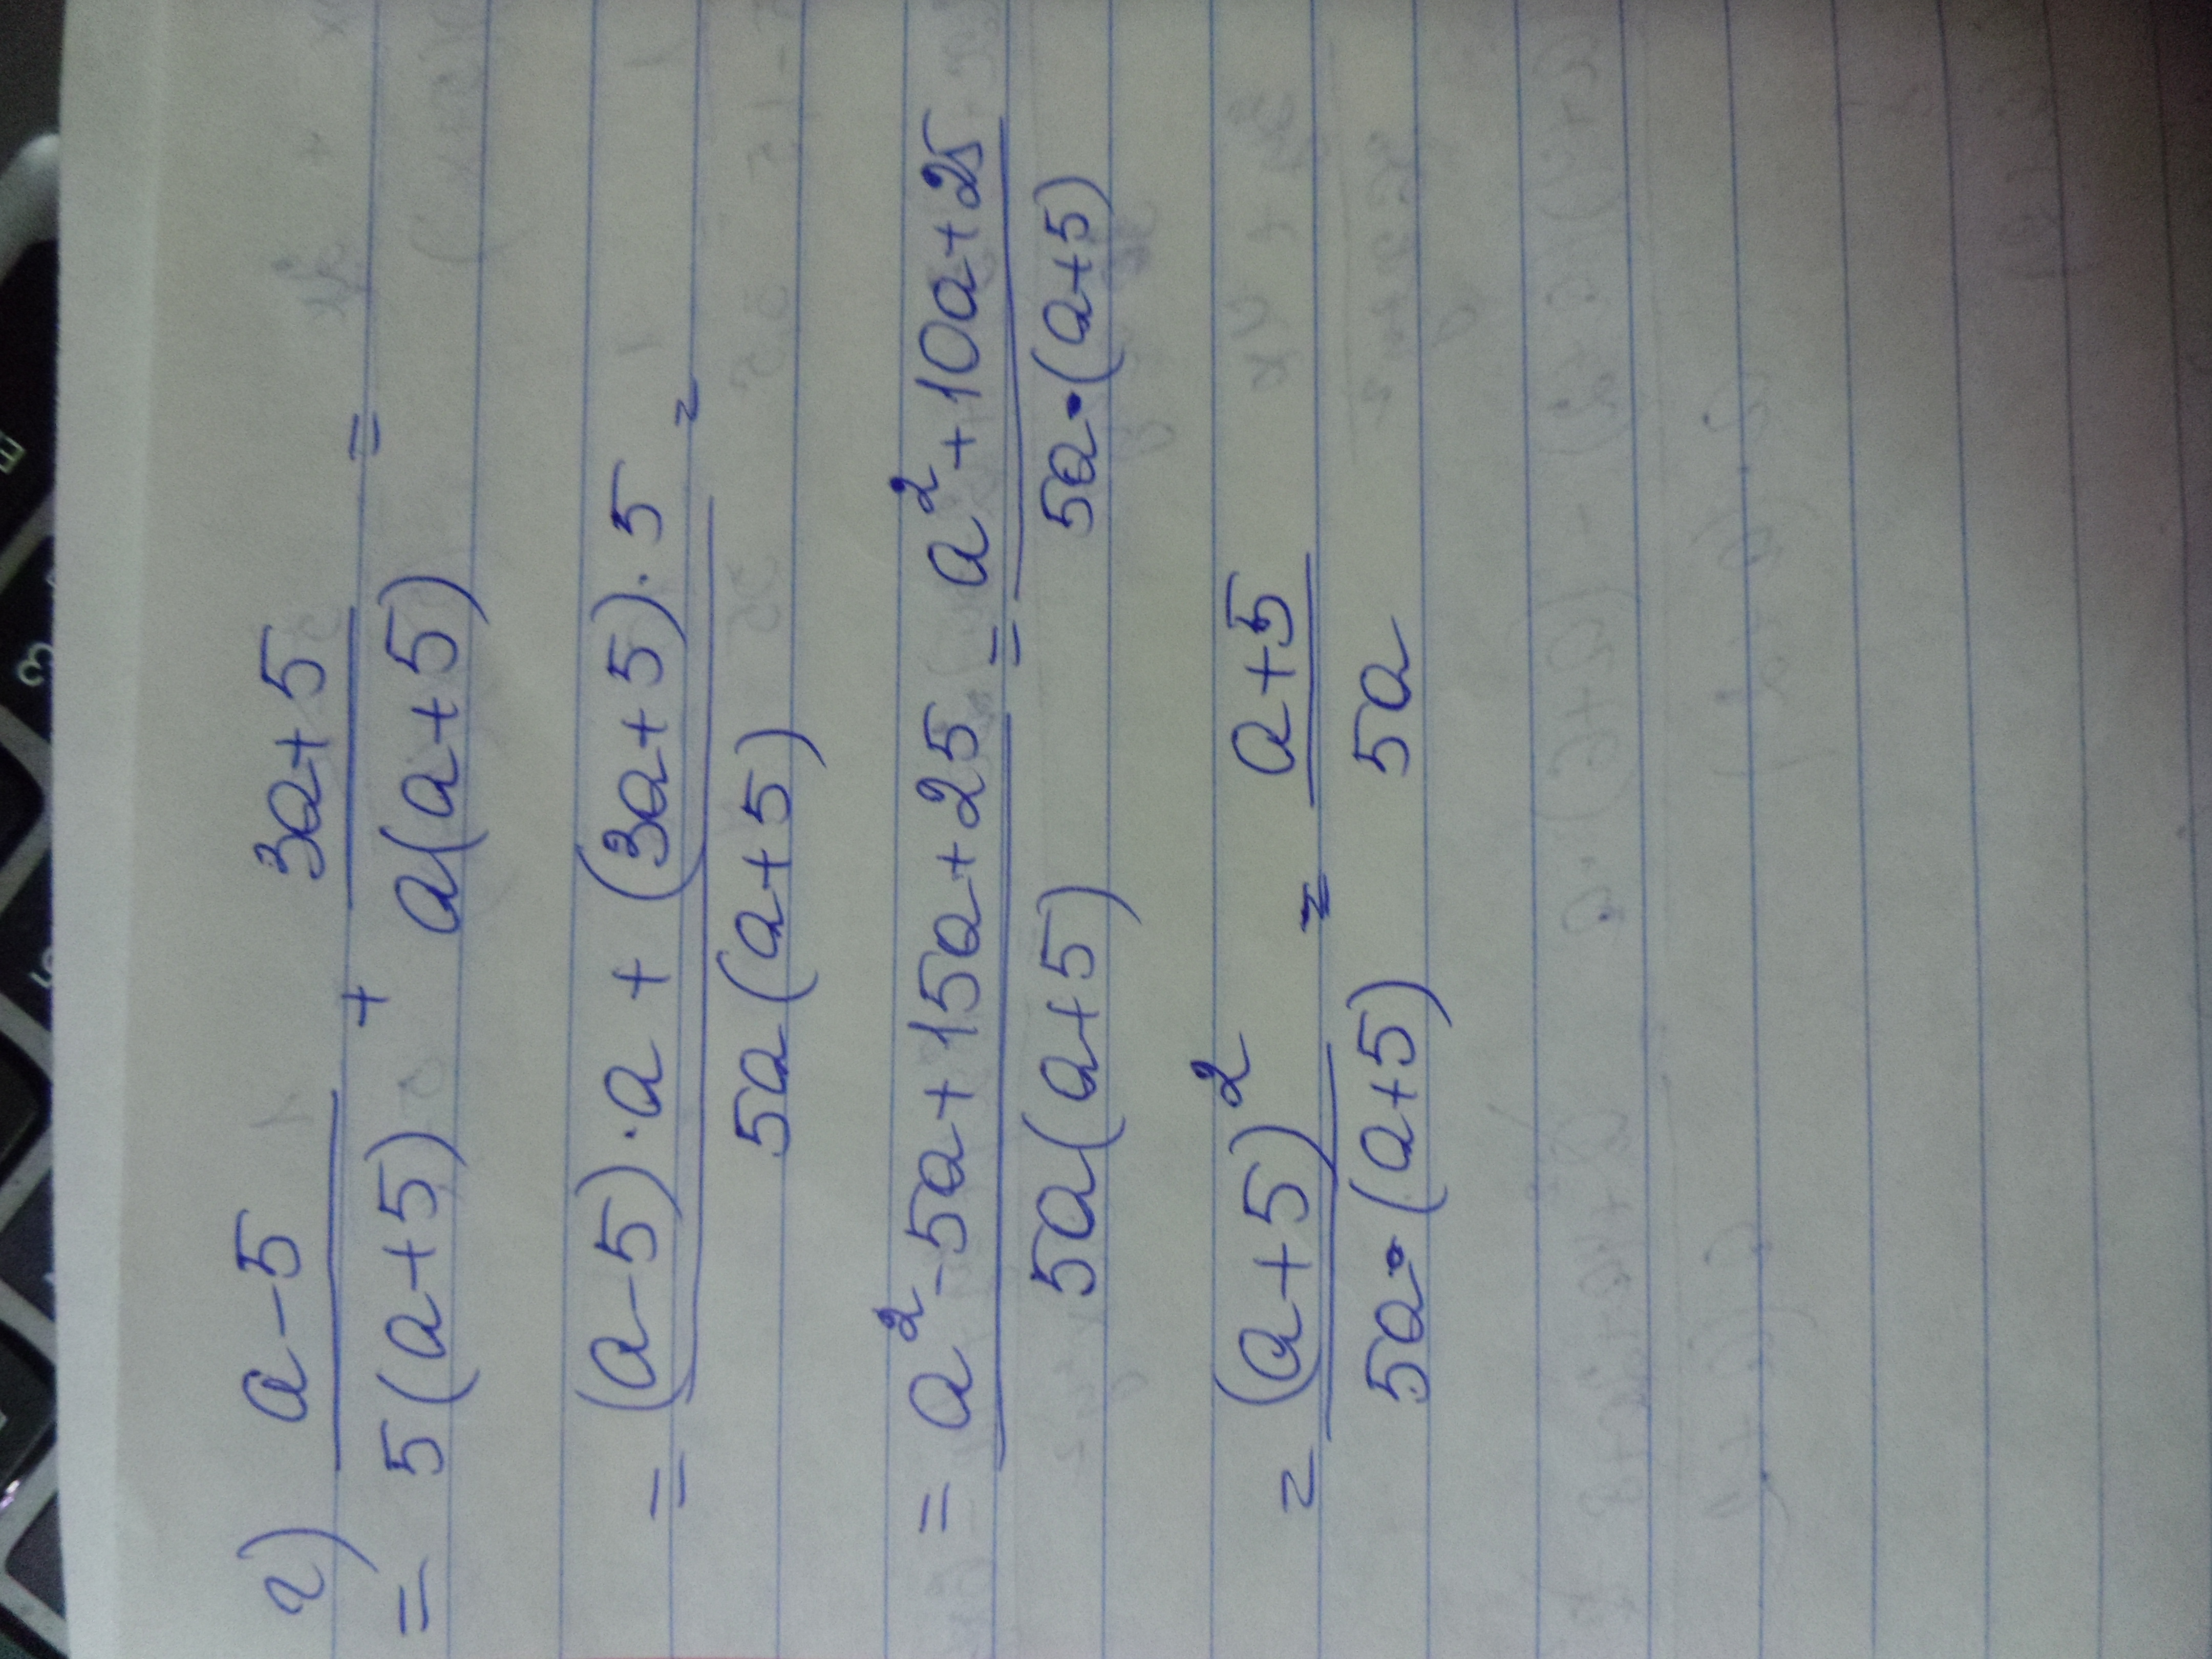 г) a-5 / 5(a+5) + 3a+5 / a(a+5) =
= (a-5)·a + (3a+5)·5 / 5a(a+5) =
= a²-5a+15a+25 / 5a(a+5) = a²+10a+25 / 5a·(a+5)
= (a+5)² / 5a·(a+5) = a+5 / 5a